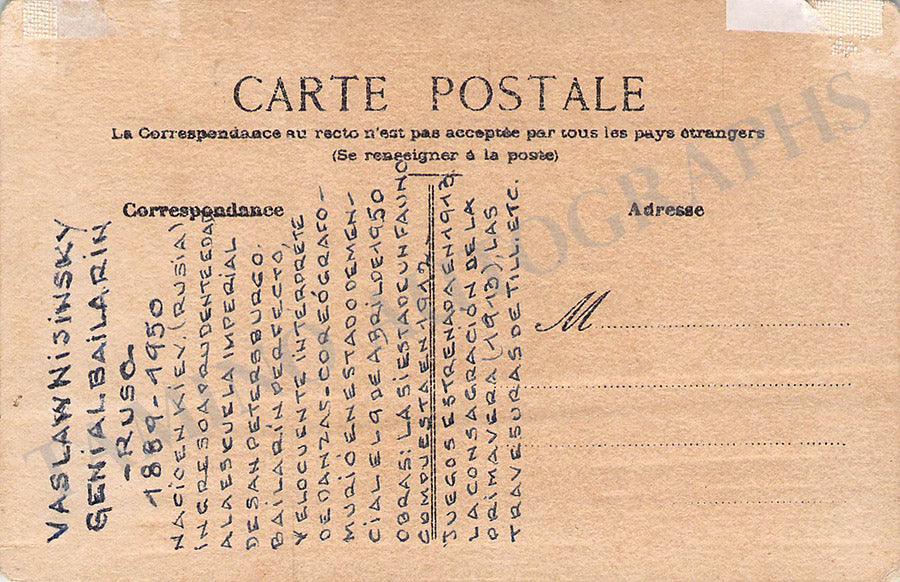 CARTE POSTALE
La Correspondance au recto n'est pas acceptée par tous les pays étrangers
(Se renseigner à la poste)
Correspondance
Adresse
M
VASLAW NIJINSKY
GENIAL BAILARIN
-RUSO-
1889-1950
NACIO EN KIEV. (RUSIA)
INGRESO A PRUDENTE EDAD
A LA ESCUELA IMPERIAL
DE SAN PETERSBURGO.
BAILARIN PERFECTO,
Y ELOCUENTE INTERPRETE
DE DANZAS-COREÓGRAFO-
MURIÓ EN ESTADO DEMEN-
CIAL EL 9 DE ABRIL DE 1950
OBRAS: LA SIESTA DE UN FAUNO
COMPUESTA EN 1912
JUEGOS ESTRENADA EN 1913,
LA CONSAGRACIÓN DE LA
PRIMAVERA (1913), LAS
TRAVESURAS DE TILL ETC.